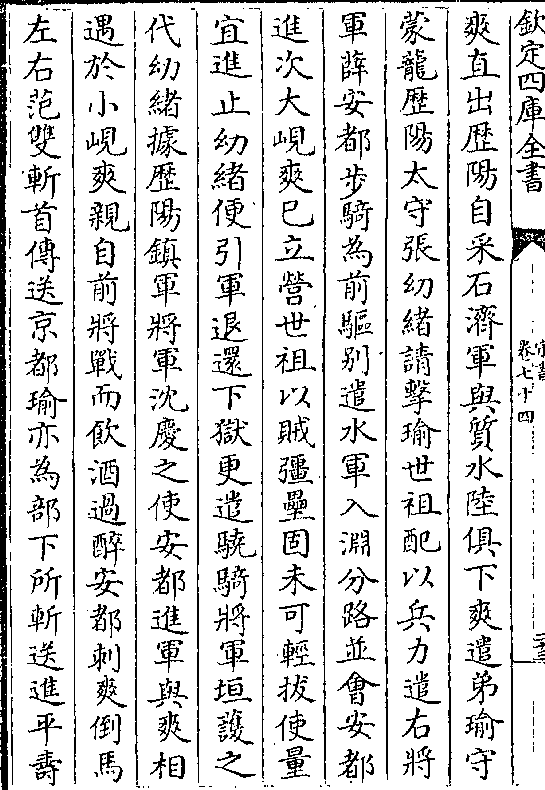 欽定四庫全書
宋書
卷七十四
爽直出歴陽自采石濟軍與質水陸俱下爽遣弟瑜守
蒙龍歴陽太守張幼緒請擊瑜世祖配以兵力遣右將
軍薛安都步騎為前驅别遣水軍入淵分路並會安都
進次大峴爽已立營世祖以賊彊壘固未可輕拔使量
宜進止幼緒便引軍退還下獄更遣驍騎將軍垣護之
代幼緒據歴陽鎮軍將軍沈慶之使安都進軍與爽相
遇於小峴爽親自前將戰而飲酒過醉安都刺爽倒馬
左右范雙斬首傳送京都瑜亦為部下所斬送進平壽